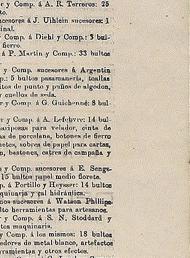 r y Comp. á A. R. Terreros: 25
to.
or y Comp. á J. Uihlein sucesores: 1
cinal.
omp. á Diehl y Comp.: 3 bul-
fierro.
á P. Martin y Comp.: 33 bultos
y Comp. sucesores á Argentin
Comp.: 5 bultos pasamanería, toallas
itos de punto y paños de algodon,
y cuellos de seda.
er y Comp. á G. Guichenné: 8 bul-
er y Comp. á A. Lefebvre: 14
mariposas para velador, cinta de
as de porcelana, botones de fierro
etes, sobres de papel para cartas,
on, bastones, catres de campaña y
er y Comp. sucesores á E. Senge-
15 bultos papel medio florete.
p. á Portillo y Heysser: 14 bultos
quinaria y cal hidráulica.
nos sucesores á Watson Phillips-
ulto herramientas para artesanos.
er y Comp. á S. N. Stoddard y
tos maquinaria.
omp. á los mismos: 18 bultos
nedores de metal blanco, artefactos
y otros efectos herramientas